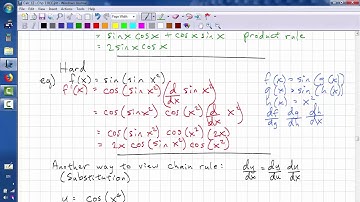 = sinx cosx + cosx sinx product rule
= 2 sinx cosx
Hard
eg) f(x) = sin(sin x²)
f'(x) = cos(sin x²) (d/dx sin x²)
= cos(sin x²) cos(x²) (d/dx x²)
= cos(sin x²) cos(x²) (2x)
= 2x cos(sin x²) cos(x²)
f(x) = sin(g(x))
g(x) = sin(h(x))
h(x) = x²
df/dg dg/dh dh/dx
Another way to view chain rule: dy/dx = dy/du du/dx
(Substitution)
u = cos(x²)